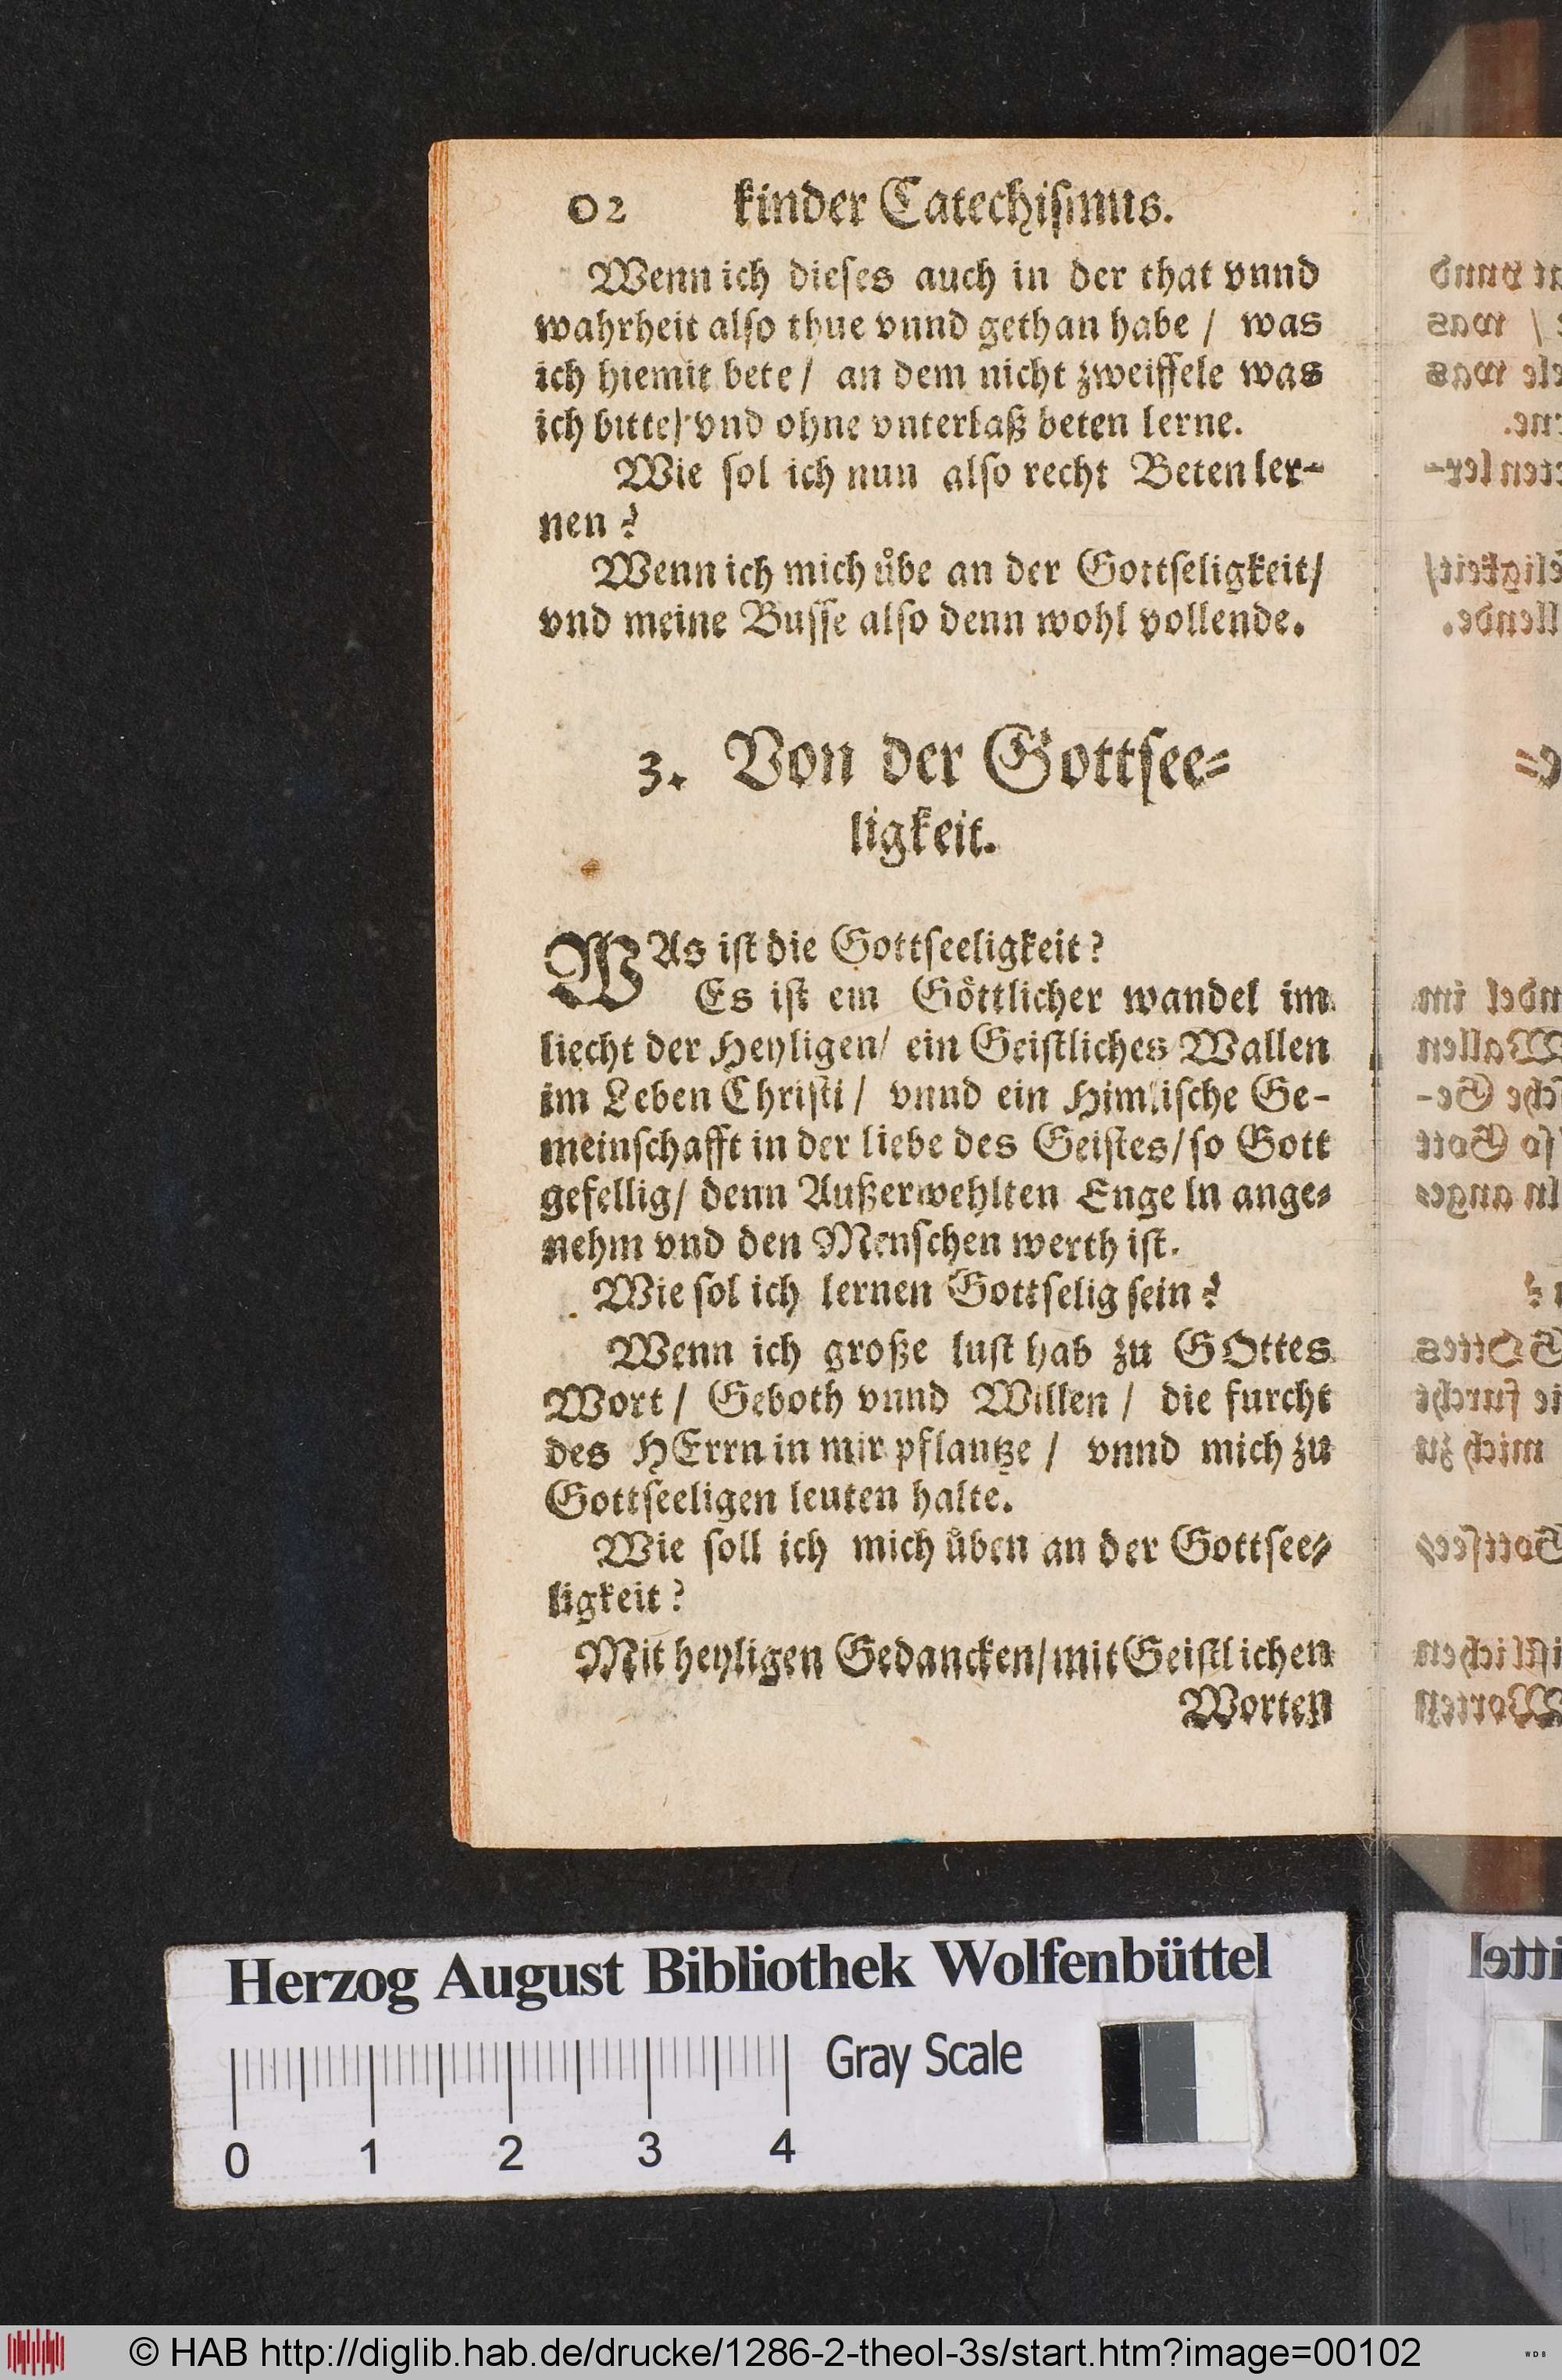 02 kinder Catechiſmus.
Wenn ich dieſes auch in der that vnnd
wahrheit alſo thue vnnd gethan habe / was
ich hiemit bete / an dem nicht zweiffele was
ich bitte / vnd ohne vnterlaß beten lerne.
Wie ſol ich nun alſo recht Beten ler-
nen?
Wenn ich mich uͤbe an der Gottſeligkeit /
vnd meine Buſſe alſo denn wohl vollende.
3. Von der Gottſee-
ligkeit.
WAs iſt die Gottſeeligkeit?
Es iſt ein Goͤttlicher wandel im
liecht der Heyligen / ein Geiſtliches Wallen
im Leben Chriſti / vnnd ein Himliſche Ge-
meinſchafft in der liebe des Geiſtes / ſo Gott
gefellig / denn Außerwehlten Engeln ange-
nehm vnd den Menſchen werth iſt.
Wie ſol ich lernen Gottſelig ſein?
Wenn ich große luſt hab zu GOttes
Wort / Geboth vnnd Willen / die furcht
des HErrn in mir pflantze / vnnd mich zu
Gottſeeligen leuten halte.
Wie ſoll ich mich uͤben an der Gottſee-
ligkeit?
Mit heyligen Gedancken / mit Geiſtlichen
Worten
Herzog August Bibliothek Wolfenbüttel
Gray Scale
0 1 2 3 4
© HAB http://diglib.hab.de/drucke/1286-2-theol-3s/start.htm?image=00102
WDB